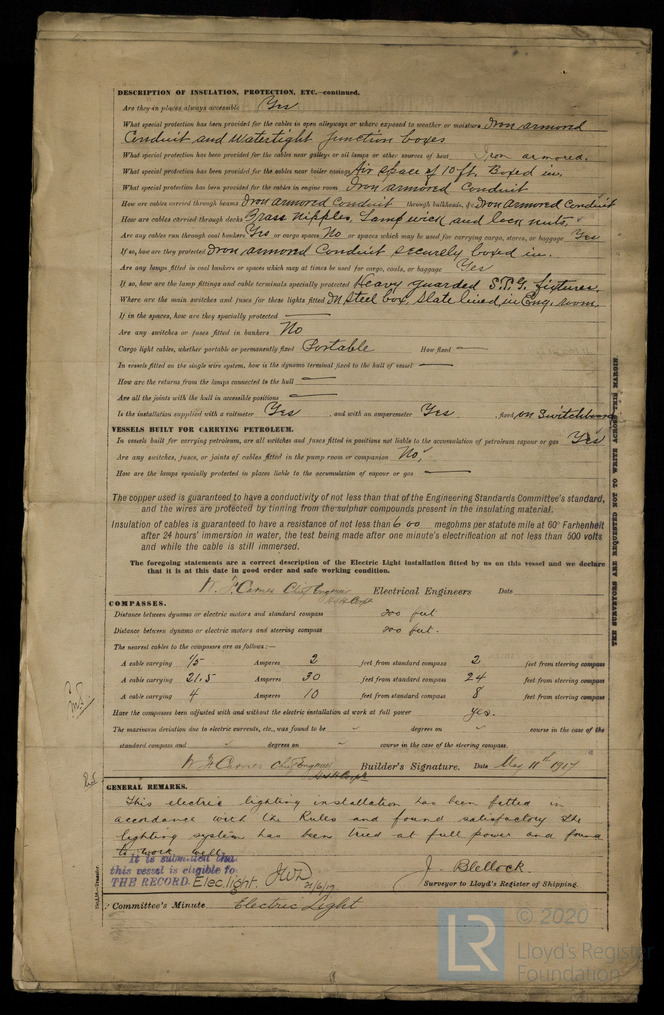 DESCRIPTION OF INSULATION, PROTECTION, ETC.—continued.
Are they in places always accessible Yes
What special protection has been provided for the cables in open alleyways or where exposed to weather or moisture Iron armored
Conduit and Watertight Junction boxes
What special protection has been provided for the cables near galleys or oil lamps or other sources of heat Iron armored.
What special protection has been provided for the cables near boiler casings Air space of 10 ft. Boxed in.
What special protection has been provided for the cables in engine room Iron armored Conduit
How are cables carried through beams Iron armored Conduit through bulkheads, &c. Iron armored Conduit
How are cables carried through decks Brass nipples, Lampwick and lock nuts.
Are any cables run through coal bunkers Yes or cargo spaces No or spaces which may be used for carrying cargo, stores, or baggage Yes
If so, how are they protected Iron armored Conduit securely boxed in.
Are any lamps fitted in coal bunkers or spaces which may at times be used for cargo, coals, or baggage Yes
If so, how are the lamp fittings and cable terminals specially protected Heavy guarded S.T.G. fixtures.
Where are the main switches and fuses for these lights fitted In steel box, slate lined in Eng. room
If in the spaces, how are they specially protected —
Are any switches or fuses fitted in bunkers No
Cargo light cables, whether portable or permanently fixed Portable How fixed —
In vessels fitted on the single wire system, how is the dynamo terminal fixed to the hull of vessel —
How are the returns from the lamps connected to the hull —
Are all the joints with the hull in accessible positions —
Is the installation supplied with a voltmeter Yes , and with an amperemeter Yes , fixed on Switchboard
VESSELS BUILT FOR CARRYING PETROLEUM.
In vessels built for carrying petroleum, are all switches and fuses fitted in positions not liable to the accumulation of petroleum vapour or gas Yes
Are any switches, fuses, or joints of cables fitted in the pump room or companion No
How are the lamps specially protected in places liable to the accumulation of vapour or gas —
The copper used is guaranteed to have a conductivity of not less than that of the Engineering Standards Committee's standard,
and the wires are protected by tinning from the sulphur compounds present in the insulating material.
Insulation of cables is guaranteed to have a resistance of not less than 600 megohms per statute mile at 60° Farhenheit
after 24 hours' immersion in water, the test being made after one minute's electrification at not less than 500 volts
and while the cable is still immersed.
The foregoing statements are a correct description of the Electric Light installation fitted by us on this vessel and we declare
that it is at this date in good order and safe working condition.
Chief Engineer Electrical Engineers Date
COMPASSES.
Distance between dynamo or electric motors and standard compass 200 feet
Distance between dynamo or electric motors and steering compass 200 feet.
The nearest cables to the compasses are as follows:—
A cable carrying 1/5 Amperes 2 feet from standard compass 2 feet from steering compass
A cable carrying 21.5 Amperes 30 feet from standard compass 24 feet from steering compass
A cable carrying 4 Amperes 10 feet from standard compass 8 feet from steering compass
Have the compasses been adjusted with and without the electric installation at work at full power yes.
The maximum deviation due to electric currents, etc., was found to be " degrees on " course in the case of the
standard compass and " degrees on " course in the case of the steering compass.
Chief Engineer Builder's Signature. Date May 11th 1917
GENERAL REMARKS.
This electric lighting installation has been fitted in
accordance with the Rules and found satisfactory the
lighting system has been tried at full power and found
to work well.
It is submitted that
this vessel is eligible for
THE RECORD. Elec. light. JWD 21/6/17
J. Blellock.
Surveyor to Lloyd's Register of Shipping.
Committee's Minute Electric Light
THE SURVEYORS ARE REQUESTED NOT TO WRITE ACROSS THIS MARGIN
© 2020
LR
Lloyd's Register
Foundation